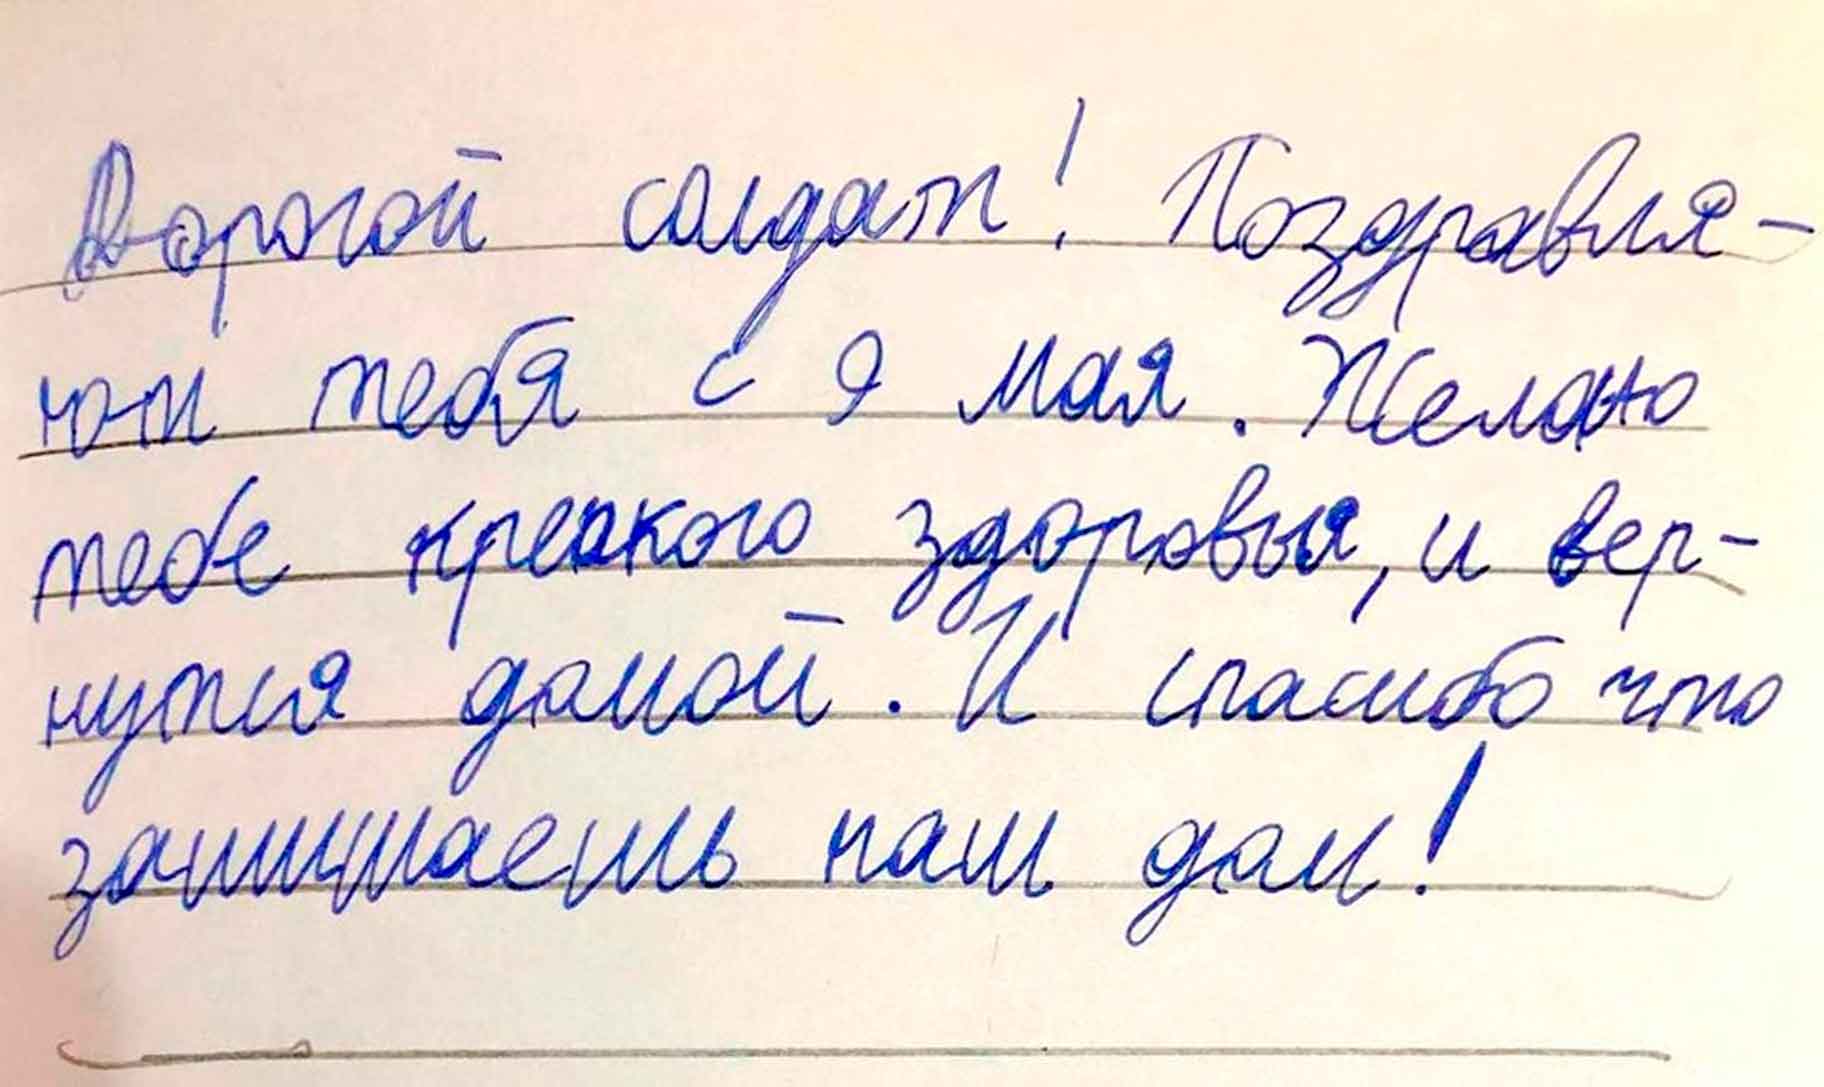 Дорогой солдат! Поздравля-
юи тебя с 9 мая. Желаю
тебе крепкого здоровья, и вер-
нутся домой. И спасибо что
защищаешь наш дом!